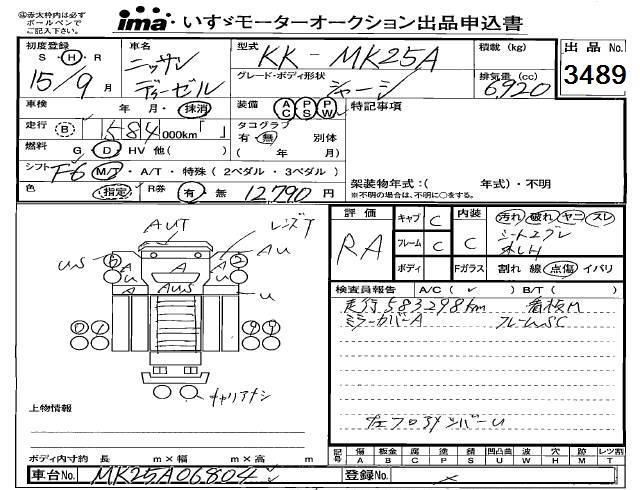 ㊟赤太枠内は必ず
ボールペンで
ご記入下さい。
ima・いすゞモーターオークション出品申込書
初度登録
S・H・R
15/9月
車名
ニッサン
ディーゼル
型式
KK-MK25A
グレード・ボディ形状
シャーシ
積載 (kg)
排気量 (cc)
6920
出品 No.
3489
車検 年 月・抹消
装備 AC PS PW
特記事項
走行 B 584 000km「 」
タコグラフ
有・無 別体
( 年 月)
燃料 G D HV 他( )
シフト F6 M/T・A/T・特殊(2ペダル・3ペダル)
架装物年式:( 年式)・不明
※不明の場合は、不明に○をする。
色 指定 R券 有・無 12,790 円
評価 RA
キャブ C
フレーム C
ボディ
内装 汚れ 破れ ヤニ スレ
Fガラス 割れ 線 点傷 イバリ
AUT
レンズT
US
AU
A
A
AUS
U
キャリアナシ
検査員報告 A/C( ✓ ) B/T( )
走行583298km 看板M
ミラーカバーA フレームSC
上物情報
ボディ内寸約 長 m×幅 m×高 m
記号 傷A 板金B 腐C 塗P 錆S 凹凸曲U 波W 穴H 跡M レツ割T
車台No. MK25A06804
登録No.